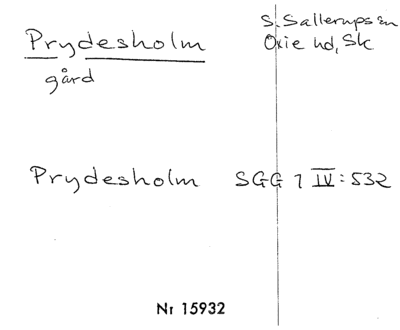 Prydesholm
gård
S. Sallerups sn
Oxie hd, Sk
Prydesholm SGG 1 IV:532
Nr 15932